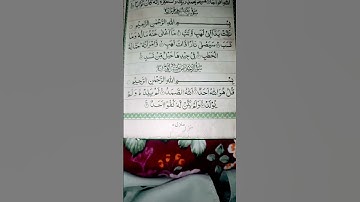 بِسْمِ اللهِ الرَّحْمٰنِ الرَّحِيْمِ
تَبَّتْ يَدَآ اَبِيْ لَهَبٍ وَّتَبَّ مَآ اَغْنٰى عَنْهُ مَالُهٗ وَمَا
كَسَبَ سَيَصْلٰى نَارًا ذَاتَ لَهَبٍ وَّامْرَاَتُهٗ حَمَّالَةَ
الْحَطَبِ فِيْ جِيْدِهَا حَبْلٌ مِّنْ مَّسَدٍ
بِسْمِ اللهِ الرَّحْمٰنِ الرَّحِيْمِ
قُلْ هُوَ اللهُ اَحَدٌ اَللهُ الصَّمَدُ لَمْ يَلِدْ وَلَمْ
يُوْلَدْ وَلَمْ يَكُنْ لَّهٗ كُفُوًا اَحَدٌ